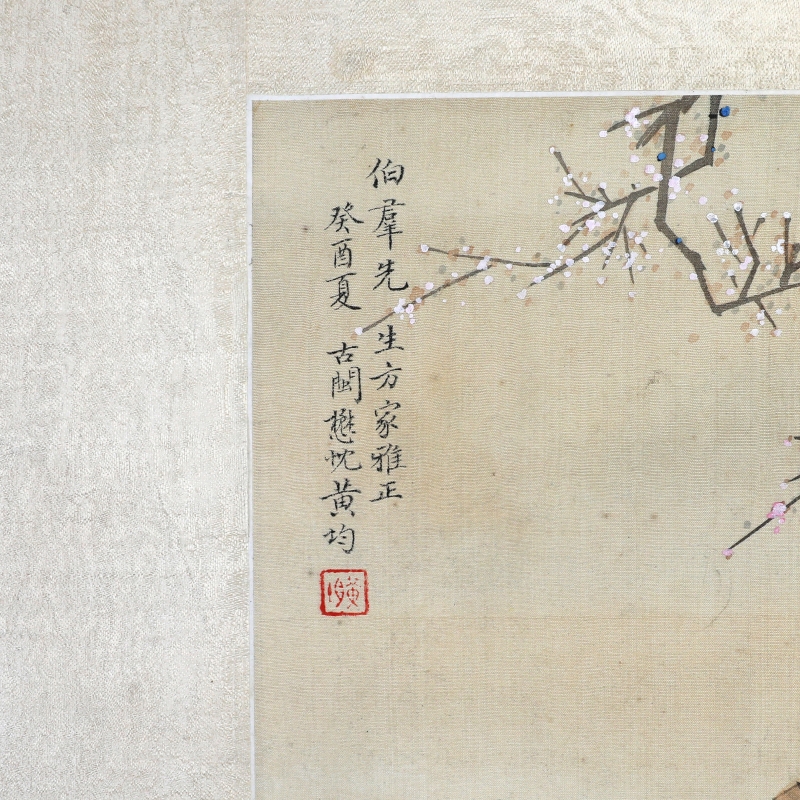 伯羣先生方家雅正
癸酉夏 古閩懋忱黃均